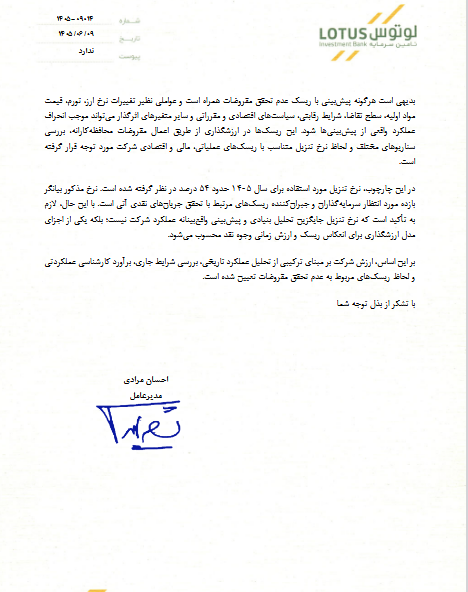 لوتوس
LOTUS
تامین سرمایه
Investment Bank
شماره ۱۴۰۵-۰۹۰۱۴
تاریخ ۱۴۰۵/۰۶/۰۹
پیوست ندارد
بدیهی است هرگونه پیش‌بینی با ریسک عدم تحقق مفروضات همراه است و عواملی نظیر تغییرات نرخ ارز، تورم، قیمت
مواد اولیه، سطح تقاضا، شرایط رقابتی، سیاست‌های اقتصادی و مقرراتی و سایر متغیرهای اثرگذار می‌تواند موجب انحراف
عملکرد واقعی از پیش‌بینی‌ها شود. این ریسک‌ها در ارزشگذاری از طریق اعمال مفروضات محافظه‌کارانه، بررسی
سناریوهای مختلف و لحاظ نرخ تنزیل متناسب با ریسک‌های عملیاتی، مالی و اقتصادی شرکت مورد توجه قرار گرفته
است.
در این چارچوب، نرخ تنزیل مورد استفاده برای سال ۱۴۰۵ حدود ۵۴ درصد در نظر گرفته شده است. نرخ مذکور بیانگر
بازده مورد انتظار سرمایه‌گذاران و جبران‌کننده ریسک‌های مرتبط با تحقق جریان‌های نقدی آتی است. با این حال، لازم
به تأکید است که نرخ تنزیل جایگزین تحلیل بنیادی و پیش‌بینی واقع‌بینانه عملکرد شرکت نیست؛ بلکه یکی از اجزای
مدل ارزشگذاری برای انعکاس ریسک و ارزش زمانی وجوه نقد محسوب می‌شود.
بر این اساس، ارزش شرکت بر مبنای ترکیبی از تحلیل عملکرد تاریخی، بررسی شرایط جاری، برآورد کارشناسی عملکرد آتی
و لحاظ ریسک‌های مربوط به عدم تحقق مفروضات تعیین شده است.
با تشکر از بذل توجه شما
احسان مرادی
مدیرعامل